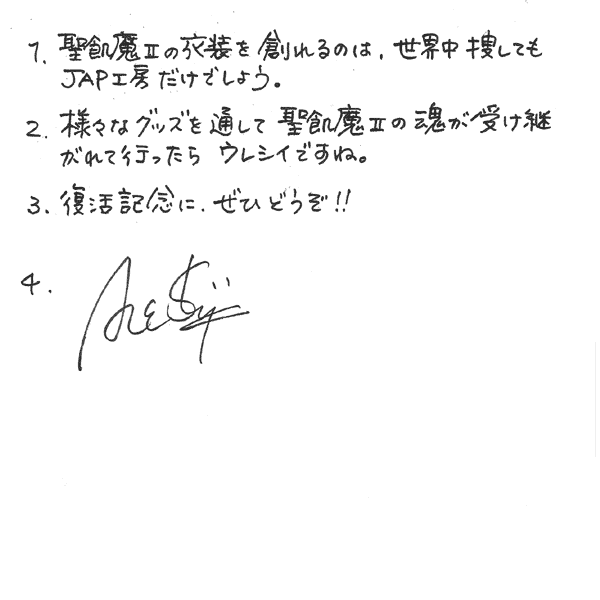 1. 聖飢魔Ⅱの衣装を創れるのは、世界中捜しても
JAP工房だけでしょう。
2. 様々なグッズを通して聖飢魔Ⅱの魂が受け継
がれて行ったらウレシイですね。
3. 復活記念に、ぜひどうぞ!!
4.